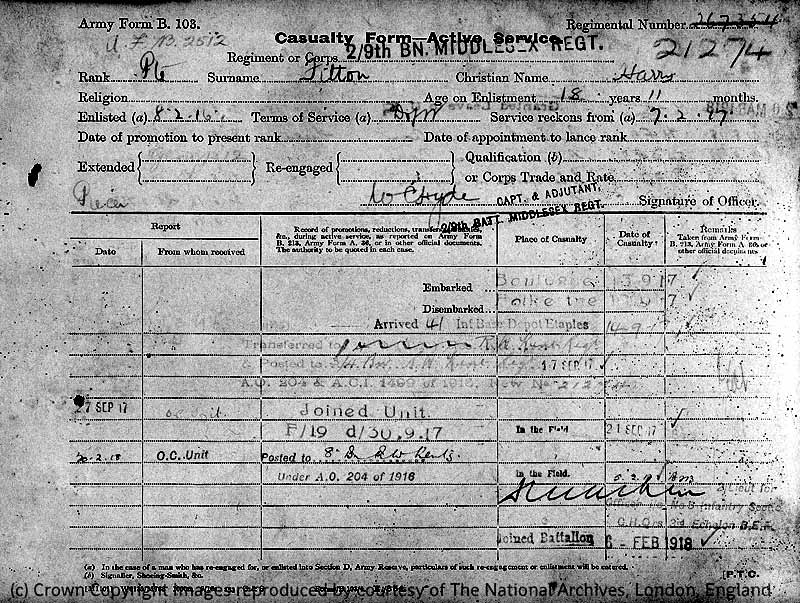 Army Form B. 103.
A. F. B. 2512
Casualty Form—Active Service.
Regimental Number
21274
Regiment or Corps 2/9th BN. MIDDLESEX REGT.
Rank Pte Surname Titton Christian Name Harry
Religion Age on Enlistment 18 years 11 months.
Enlisted (a) 8.2.16 Terms of Service (a) DofW Service reckons from (a) 7.2.17
Date of promotion to present rank Date of appointment to lance rank
Extended Re-engaged Qualification (b)
or Corps Trade and Rate
W C Hyde CAPT. & ADJUTANT, Signature of Officer.
2/9th BATT. MIDDLESEX REGT.
Report
Date From whom received
Record of promotions, reductions, transfers, casualties, &c., during active service, as reported on Army Form B. 213, Army Form A. 36, or in other official documents. The authority to be quoted in each case.
Place of Casualty
Date of Casualty
Remarks
Taken from Army Form B. 213, Army Form A. 36, or other official documents
Embarked Boulogne 13.9.17
Disembarked
Arrived 41 Inf Base Depot Etaples 14-9-17
Transferred to R. W. Kent Regt
& Posted to 17 SEP 17
A.O. 204 & A.C.I. 1499 of 1916. New No 21274
27 SEP 17 O.C. Unit Joined Unit
F/19 d/30.9.17 In the Field 21 SEP 17
20-2-18 O.C. Unit Posted to 8" Bn R W Kents. In the Field.
Under A.O. 204 of 1916
Lieut for
No 8 Infantry Section
G.H.Qrs 3rd Echelon B.E.F.
Joined Battalion 6 - FEB 1918
(a) In the case of a man who has re-engaged for, or enlisted into Section D, Army Reserve, particulars of such re-engagement or enlistment will be entered.
(b) Signaller, Shoeing-Smith, &c.
[P.T.O.
(c) Crown Copyright Images reproduced by courtesy of The National Archives, London, England